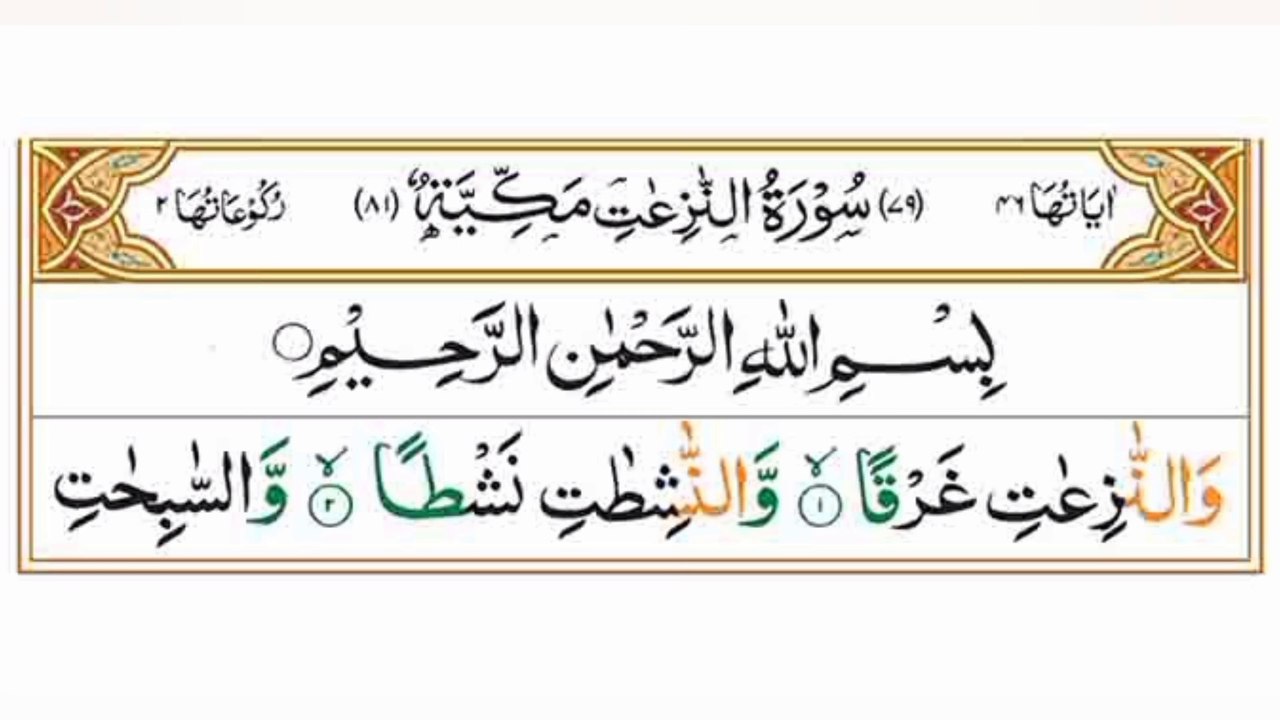 اٰيَاتُهَا ٤٦ (٧٩) سُوْرَةُ النّٰزِعٰتِ مَكِّيَّةٌ (٨١) رُكُوْعَاتُهَا ٢
بِسْمِ اللّٰهِ الرَّحْمٰنِ الرَّحِيْمِ
وَالنّٰزِعٰتِ غَرْقًا ۙ﴿١﴾ وَّالنّٰشِطٰتِ نَشْطًا ۙ﴿٢﴾ وَّالسّٰبِحٰتِ